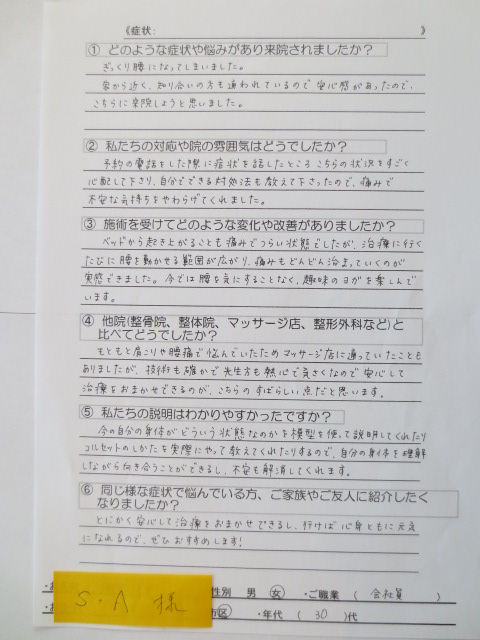 《症状: 》
① どのような症状や悩みがあり来院されましたか？
ぎっくり腰になってしまいました。
家から近く、知り合いの方も通われているので安心感があったので、
こちらに来院しようと思いました。
② 私たちの対応や院の雰囲気はどうでしたか？
予約の電話をした際に症状を話したところ、こちらの状況をすごく
心配して下さり、自分でできる対処法も教えて下さったので、痛みで
不安な気持ちをやわらげてくれました。
③ 施術を受けてどのような変化や改善がありましたか？
ベッドから起き上がることも痛みでつらい状態でしたが、治療に行く
たびに腰を動かせる範囲が広がり、痛みもどんどん治まっていくのが
実感できました。今では腰を気にすることなく、趣味のヨガを楽しんで
います。
④ 他院(整骨院、整体院、マッサージ店、整形外科など)と
比べてどうでしたか？
もともと肩こりや腰痛で悩んでいたためマッサージ店に通っていたことも
ありましたが、技術も確かで先生方も熱心で良さくなので安心して
治療をおまかせできるのが、こちらのすばらしい点だと思います。
⑤ 私たちの説明はわかりやすかったですか？
今の自分の身体がどういう状態なのかを模型を使って説明してくれたり
コルセットのしかたを実際にやって教えてくれたりするので、自分の身体を理解
しながら向き合うことができるし、不安も解消してくれます。
⑥ 同じ様な症状で悩んでいる方、ご家族やご友人に紹介したく
なりましたか？
とにかく安心して治療をおまかせできるし、行けば心身ともに元気
になれるので、ぜひおすすめします！
性別 男 女 ・ご職業 （ 会社員 ）
S・A 様 市区 ・年代 （ 30 ）代